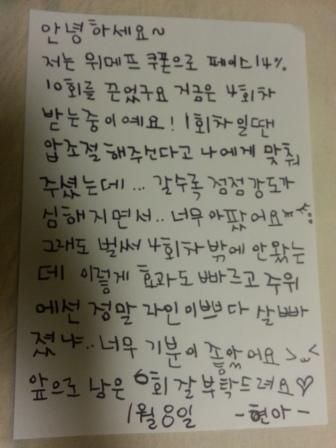 안녕하세요~
저는 위메프 쿠폰으로 페이스 14%
10회를 끊었구요 지금은 4회차
받는중이예요! 1회차 일땐
압조절 해주신다고 나에게 맞춰
주셨는데... 갈수록 점점강도가
심해지면서.. 너무아팠어요
그래도 벌써 4회차 밖에 안왔는
데 이렇게 효과도 빠르고 주위
에선 정말 라인이쁘다 살빠
졌냐.. 너무 기분이 좋아어요 >.<
앞으로 남은 6회 잘부탁드려요♡
1월 8일 -현아-